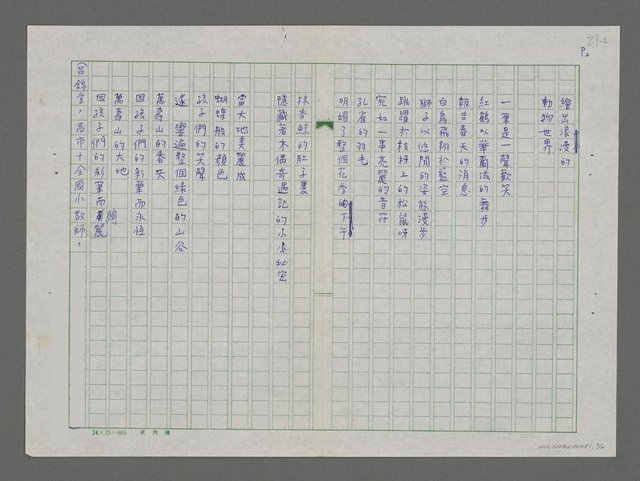 P2
繪出浪漫的
動物世界
一筆是一聲歡笑
紅鶴以華爾滋的舞步
報告春天的消息
白鳥飛翔於藍空
獅子以悠閒的姿態漫步
跳躍於枝椏上的松鼠呀
宛如一串亮麗的音符
孔雀的羽毛
明媚了整個花季的下午
扶香蕉的肚子裏
隱藏著木偶奇遇記的小小秘密
當大地美麗成
蝴蝶般的顏色
孩子們的笑聲
遂 響遍整個綠色的山谷
萬壽山的春天
因孩子們的彩筆而永恆
萬壽山的大地
因孩子們的彩筆而美麗
(呂錦堂,高市十全國小教師)
24×25=600